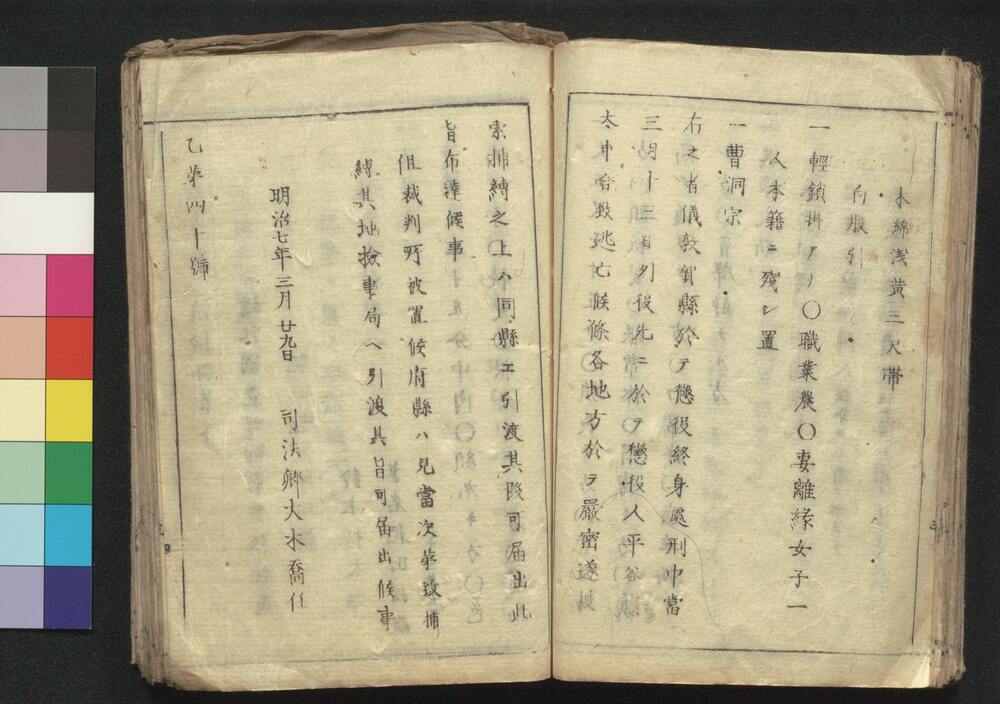 木綿浅黄三尺帯
白股引
一輕鎖掛アリ〇職業農〇妻離緣女子一
人本籍ニ殘シ置
一曹洞宗
右之者儀敦賀縣於テ懲役終身處刑中當
三月十三日夕役先ニ於テ懲役人平谷
太申合致逃亡候條各地方於テ嚴密遂捜
索捕縛之上ハ同縣エ引渡其段可届出此
旨布達候事
但裁判所被置候府縣ハ見當次第致捕
縛其地撿事局ヘ引渡其旨可届出候事
明治七年三月廿九日 司法卿大木喬任
乙第四十號